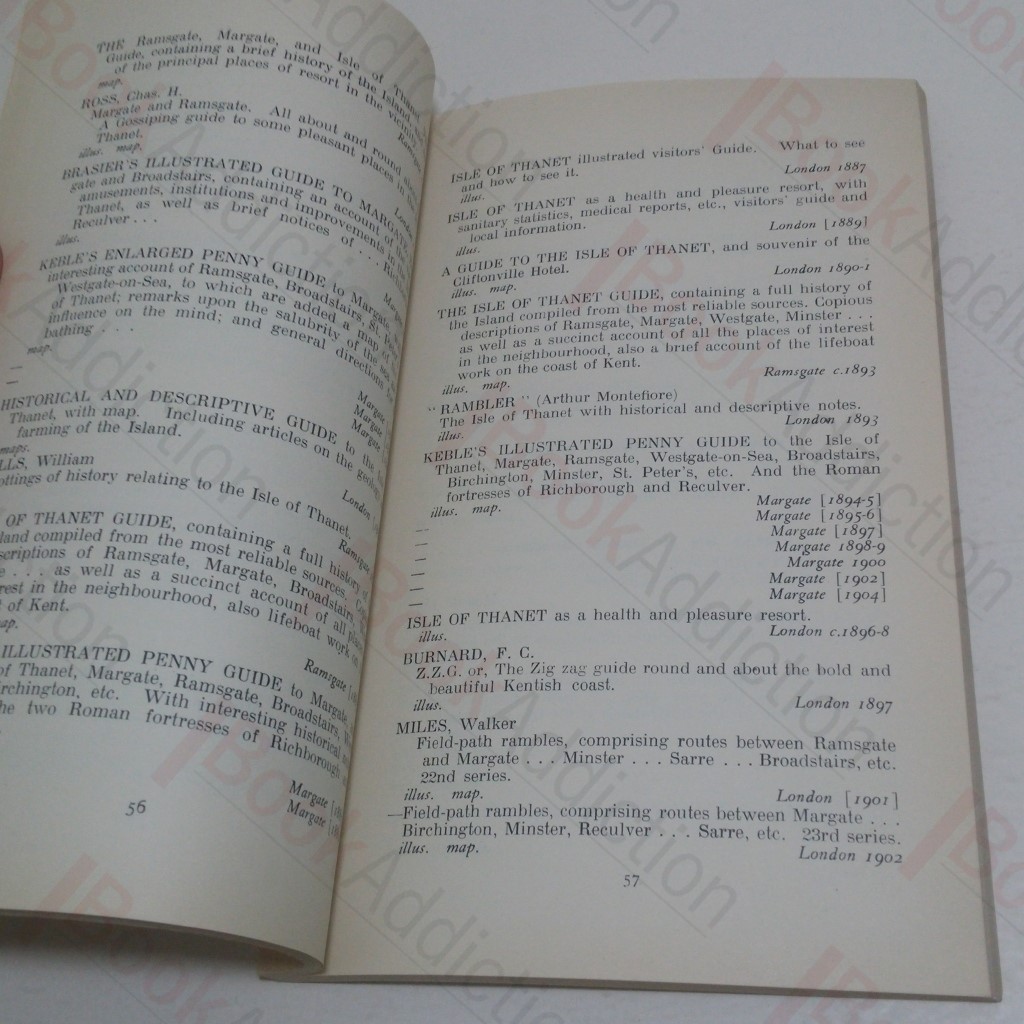 THE Ramsgate, Margate, and Isle of Thanet
Guide, containing a brief history of the Island,
of the principal places of resort in the vicinity
map.
ROSS, Chas. H.
Margate and Ramsgate. All about and round about
A Gossiping guide to some pleasant places in the
Thanet.
illus. map.
BRASIER'S ILLUSTRATED GUIDE TO MARGATE
gate and Broadstairs, containing an account of the
amusements, institutions and improvements in the
Thanet, as well as brief notices of
Reculver . . .
illus.
KEBLE'S ENLARGED PENNY GUIDE to Margate
interesting account of Ramsgate, Broadstairs, St. Peter
Westgate-on-Sea, to which are added a map of
of Thanet; remarks upon the salubrity of the
influence on the mind; and general directions
bathing . . .
map.
—
Margate
—
Margate
Margate
HISTORICAL AND DESCRIPTIVE GUIDE to the
Thanet, with map. Including articles on the
farming of the Island.
maps.
London
LLS, William
ottings of history relating to the Isle of Thanet.
Ramsgate
OF THANET GUIDE, containing a full history of
land compiled from the most reliable sources.
scriptions of Ramsgate, Margate, Broadstairs,
. . . as well as a succinct account of all
rest in the neighbourhood, also lifeboat work on
t of Kent.
map.
Ramsgate
ILLUSTRATED PENNY GUIDE to Margate,
of Thanet, Margate, Ramsgate, Broadstairs,
irchington, etc. With interesting historical
he two Roman fortresses of Richborough
Margate
Margate
56
ISLE OF THANET illustrated visitors' Guide. What to see
and how to see it.
illus. London 1887
ISLE OF THANET as a health and pleasure resort, with
sanitary statistics, medical reports, etc., visitors' guide and
local information.
illus. London [1889]
A GUIDE TO THE ISLE OF THANET, and souvenir of the
Cliftonville Hotel.
illus. map. London 1890-1
THE ISLE OF THANET GUIDE, containing a full history of
the Island compiled from the most reliable sources. Copious
descriptions of Ramsgate, Margate, Westgate, Minster . . .
as well as a succinct account of all the places of interest
in the neighbourhood, also a brief account of the lifeboat
work on the coast of Kent.
illus. map. Ramsgate c.1893
" RAMBLER " (Arthur Montefiore)
The Isle of Thanet with historical and descriptive notes.
illus. London 1893
KEBLE'S ILLUSTRATED PENNY GUIDE to the Isle of
Thanet, Margate, Ramsgate, Westgate-on-Sea, Broadstairs,
Birchington, Minster, St. Peter's, etc. And the Roman
fortresses of Richborough and Reculver.
illus. map. Margate [1894-5]
— Margate [1895-6]
— Margate [1897]
— Margate 1898-9
— Margate 1900
— Margate [1902]
— Margate [1904]
ISLE OF THANET as a health and pleasure resort.
illus. London c.1896-8
BURNARD, F. C.
Z.Z.G. or, The Zig zag guide round and about the bold and
beautiful Kentish coast.
illus. London 1897
MILES, Walker
Field-path rambles, comprising routes between Ramsgate
and Margate . . . Minster . . . Sarre . . . Broadstairs, etc.
22nd series.
illus. map. London [1901]
—Field-path rambles, comprising routes between Margate . . .
Birchington, Minster, Reculver . . . Sarre, etc. 23rd series.
illus. map. London 1902
57